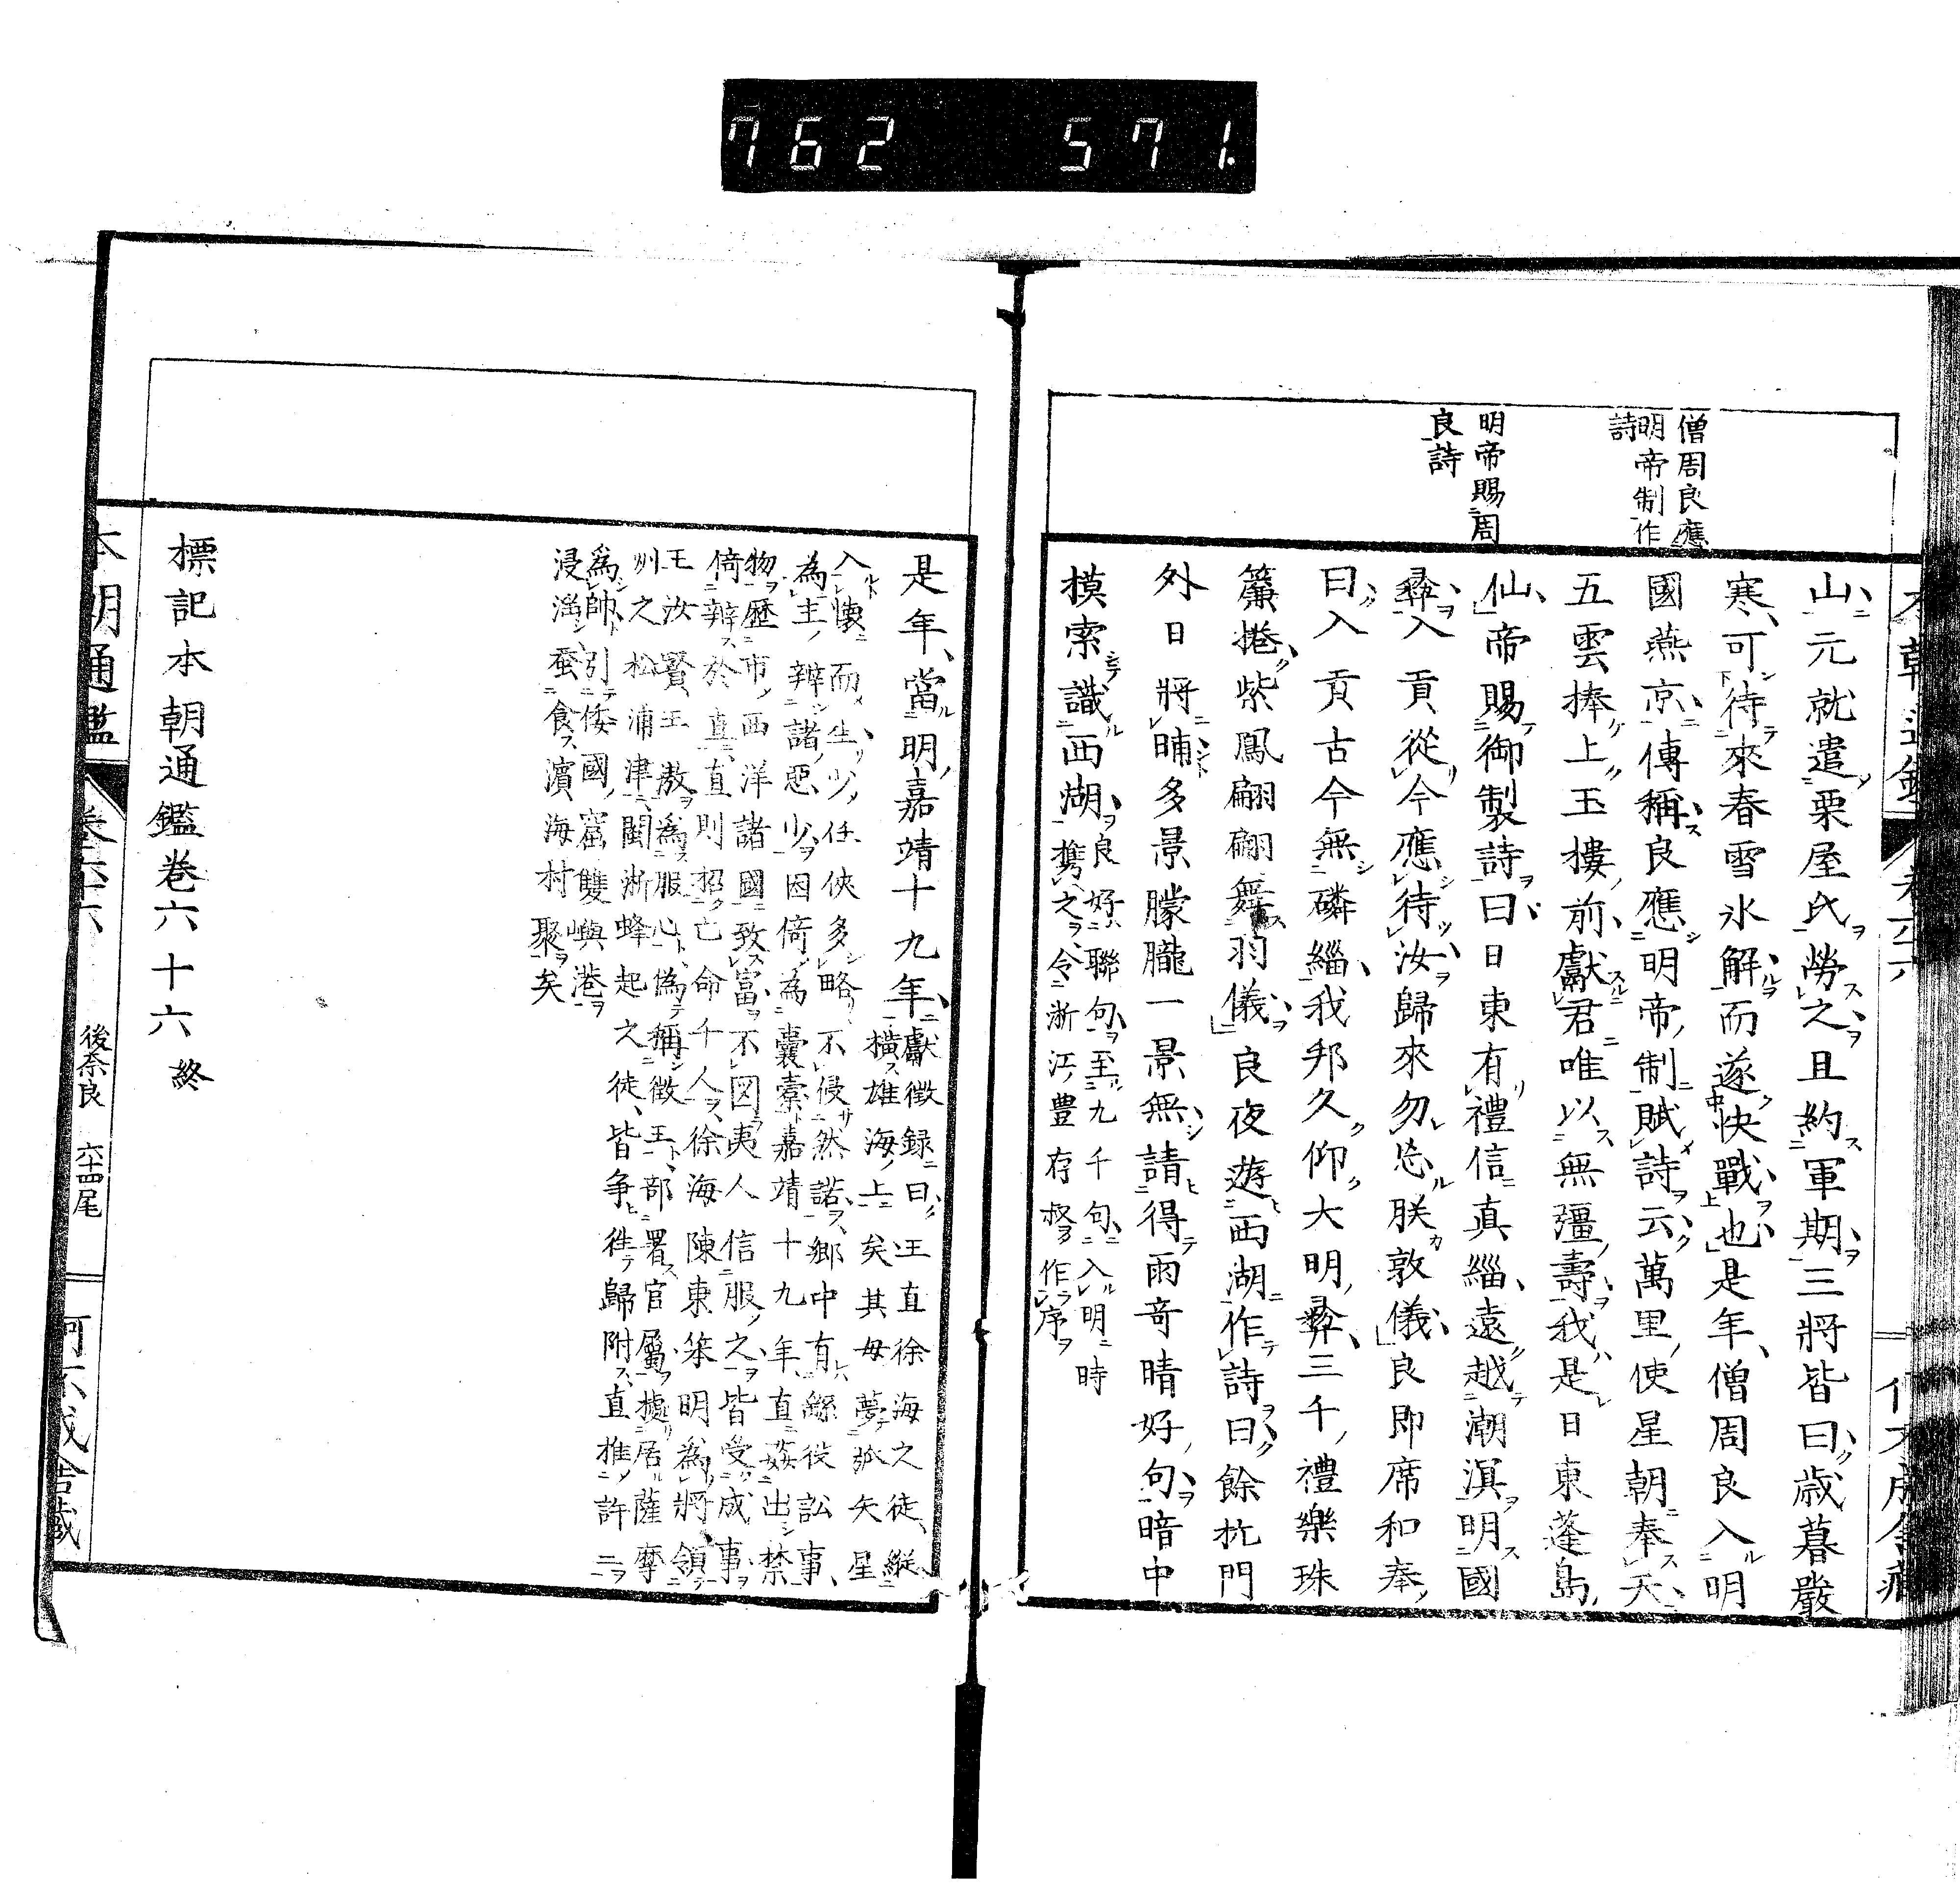 762 571
僧周良應
明帝制作
詩
明帝賜周
良詩
山元就遣粟屋氏勞之且約軍期三將皆曰歳暮嚴
寒可待來春雪氷解而遂快戰也是年僧周良入明
國燕京傳稱良應明帝制賦詩云萬里使星朝奉天
五雲捧上玉樓前獻君唯以無疆壽我是日東蓬島
仙帝賜御製詩曰日東有禮信真緇遠越潮溟明國
彜入貢從今應待汝歸來勿忘朕敦儀良即席和奉
曰入貢古今無磷緇我邦久仰大明彜三千禮樂珠
簾捲紫鳳翩翩舞羽儀良夜遊西湖作詩曰餘杭門
外日將晡多景朦朧一景無請得雨竒晴好句暗中
摸索識西湖良好聯句至九千句入明時
携之令浙江豊存叔作序
是年當明嘉靖十九年獻徴録曰王直徐海之徒縦
横雄海上矣其母夢弧矢星
入懐而生少任俠多略不侵然諾郷中有繇役訟事
為主辨諸惡少因倚為囊橐嘉靖十九年直姦出禁
物歴市西洋諸國致富不図夷人信服之皆受成事
倚辨於直直則招亡命千人徐海陳東笨明為將領
王汝賢王敖為服心偽稱徴王部署官屬據居薩摩
州之松浦津閩浙蜂起之徒皆争徃歸附直推許二
為帥引倭國窟雙嶼港
浸淫蚕食濱海村聚矣
標記本朝通鑑巻六十六終
本朝通鑑 巻六十六 後奈良 六十四尾